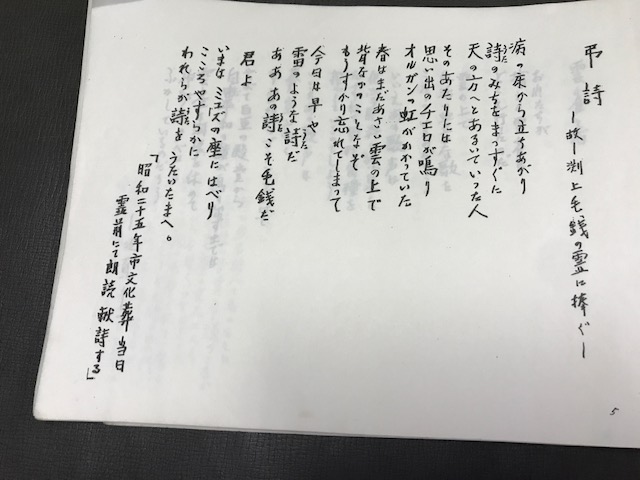 弔詩
―故―渕上毛銭の霊に捧ぐ―
病の床から立ちあがり
詩のみちをまっすぐに
うた
天の方へとあるいていった人
そのあたりには
思い出のチェロが鳴り
オルガンの虹がかかっていた
春はまだあさい雲の上で
背なかのことなぞ
もうすっかり忘れてしまって
今日は早や
雪のような詩だ
うた
ああ あの詩こそ毛銭だ
うた
君よ
いまはミューズの座にはべり
こころやすらかに
われらが詩を うたいたまへ。
うた
「昭和二十五年市文化葬当日
霊前にて朗読 献詩する」
5